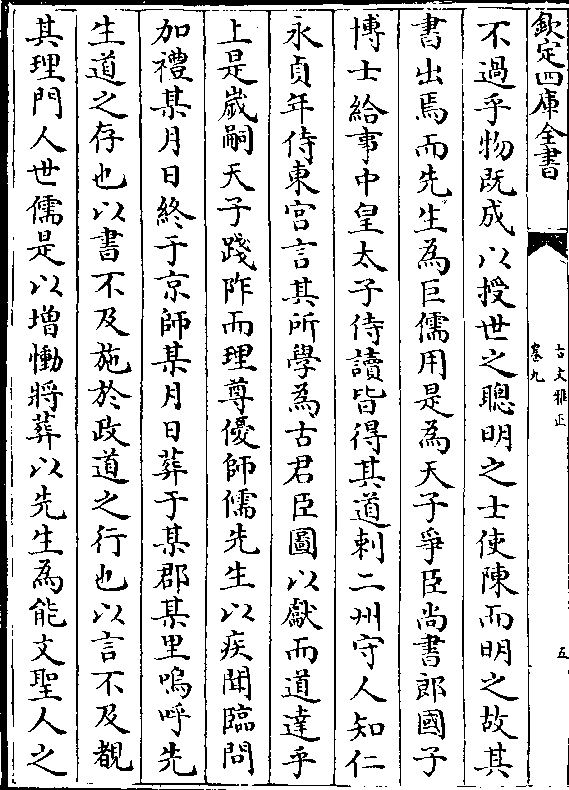 欽定四庫全書
古文雅正
卷九
五
不過乎物既成以授世之聰明之士使陳而明之故其
書出焉而先生為巨儒用是為天子爭臣尚書郎國子
博士給事中皇太子侍讀皆得其道刺二州守人知仁
永貞年侍東宮言其所學為古君臣圖以獻而道達乎
上是嵗嗣天子踐阼而理尊優師儒先生以疾聞臨問
加禮某月日終于京師某月日葬于某郡某里嗚呼先
生道之存也以書不及施於政道之行也以言不及覩
其理門人世儒是以增慟將葬以先生為能文聖人之